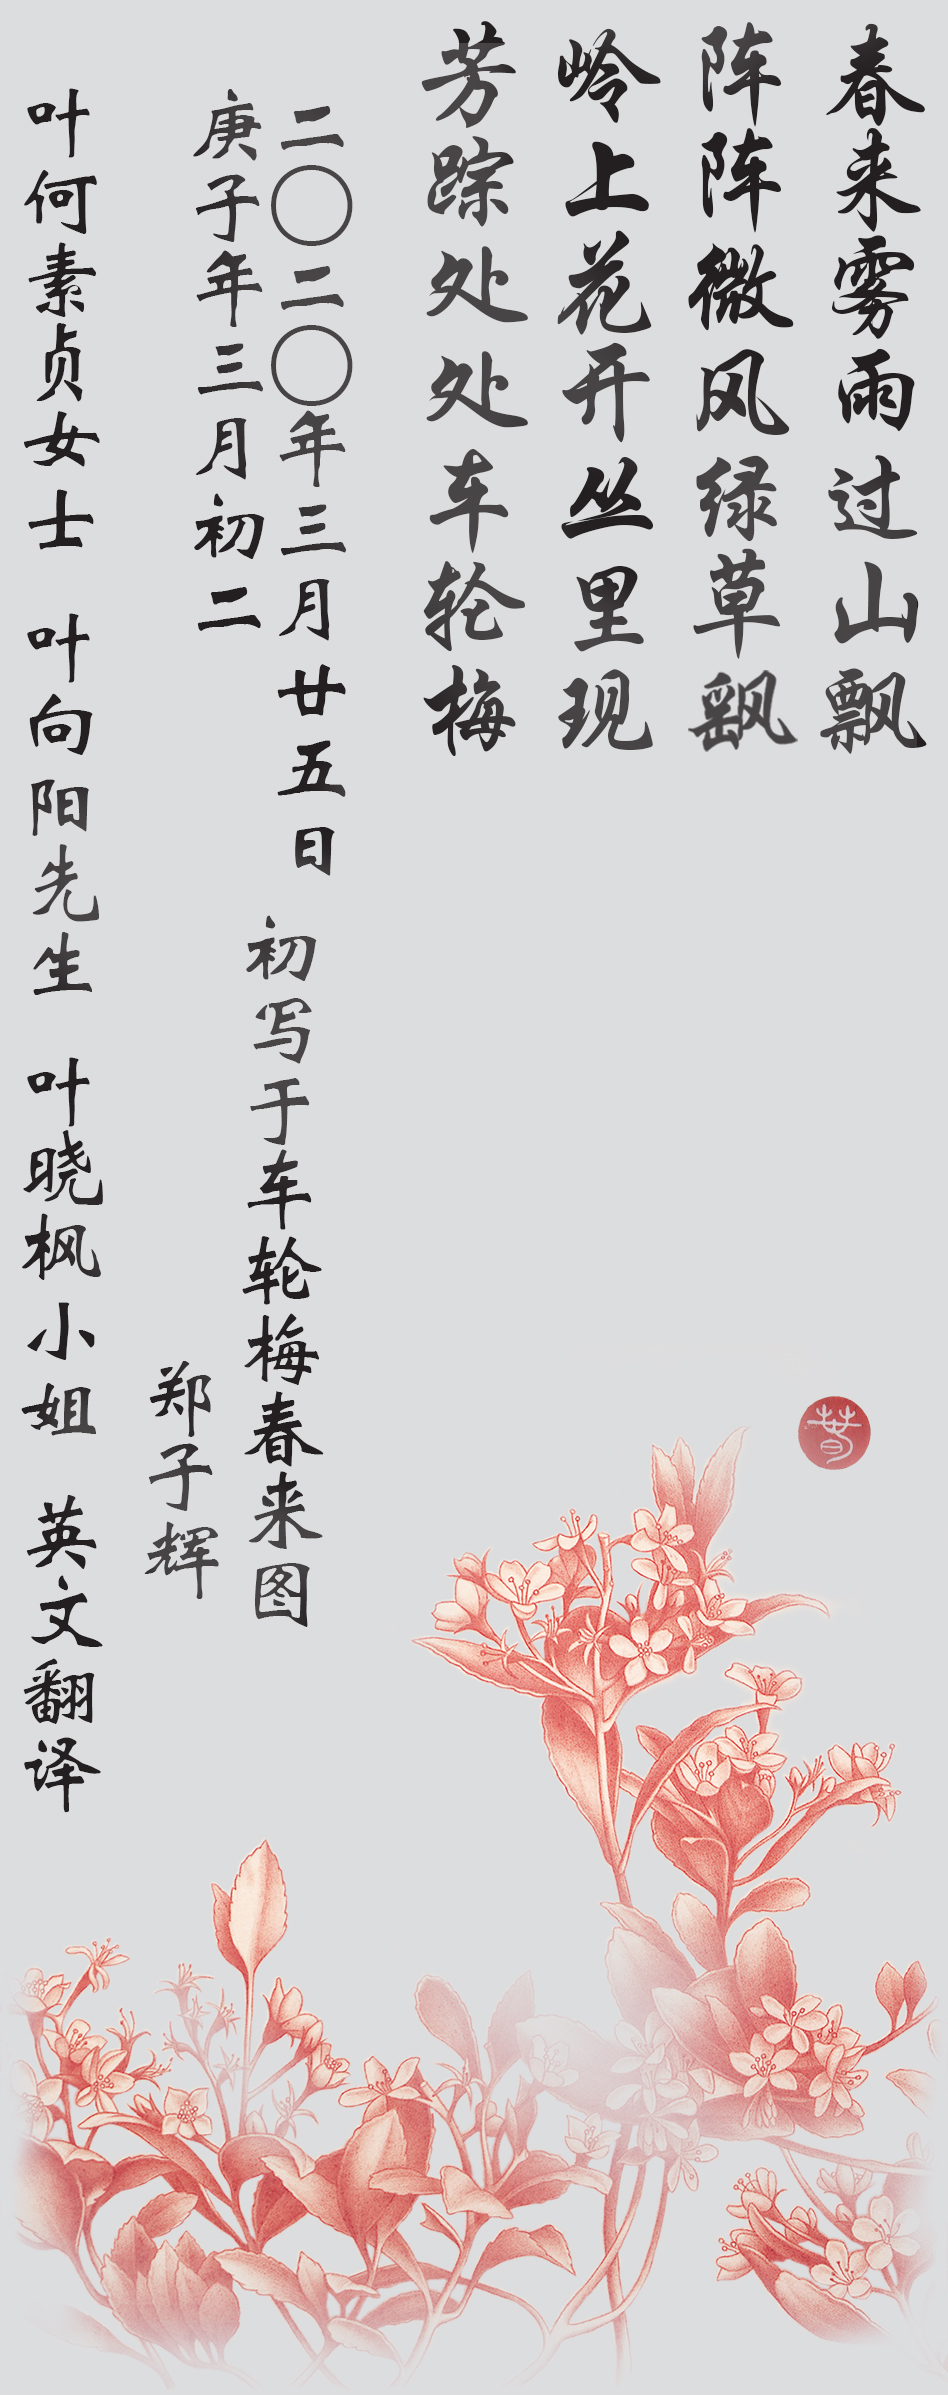 春来雾雨过山飘
阵阵微风绿草飖
岭上花开丛里现
芳踪处处车轮梅
二〇二〇年三月廿五日
庚子年三月初二
初写于车轮梅春来图
郑子辉
叶何素贞女士 叶向阳先生 叶晓枫小姐 英文翻译